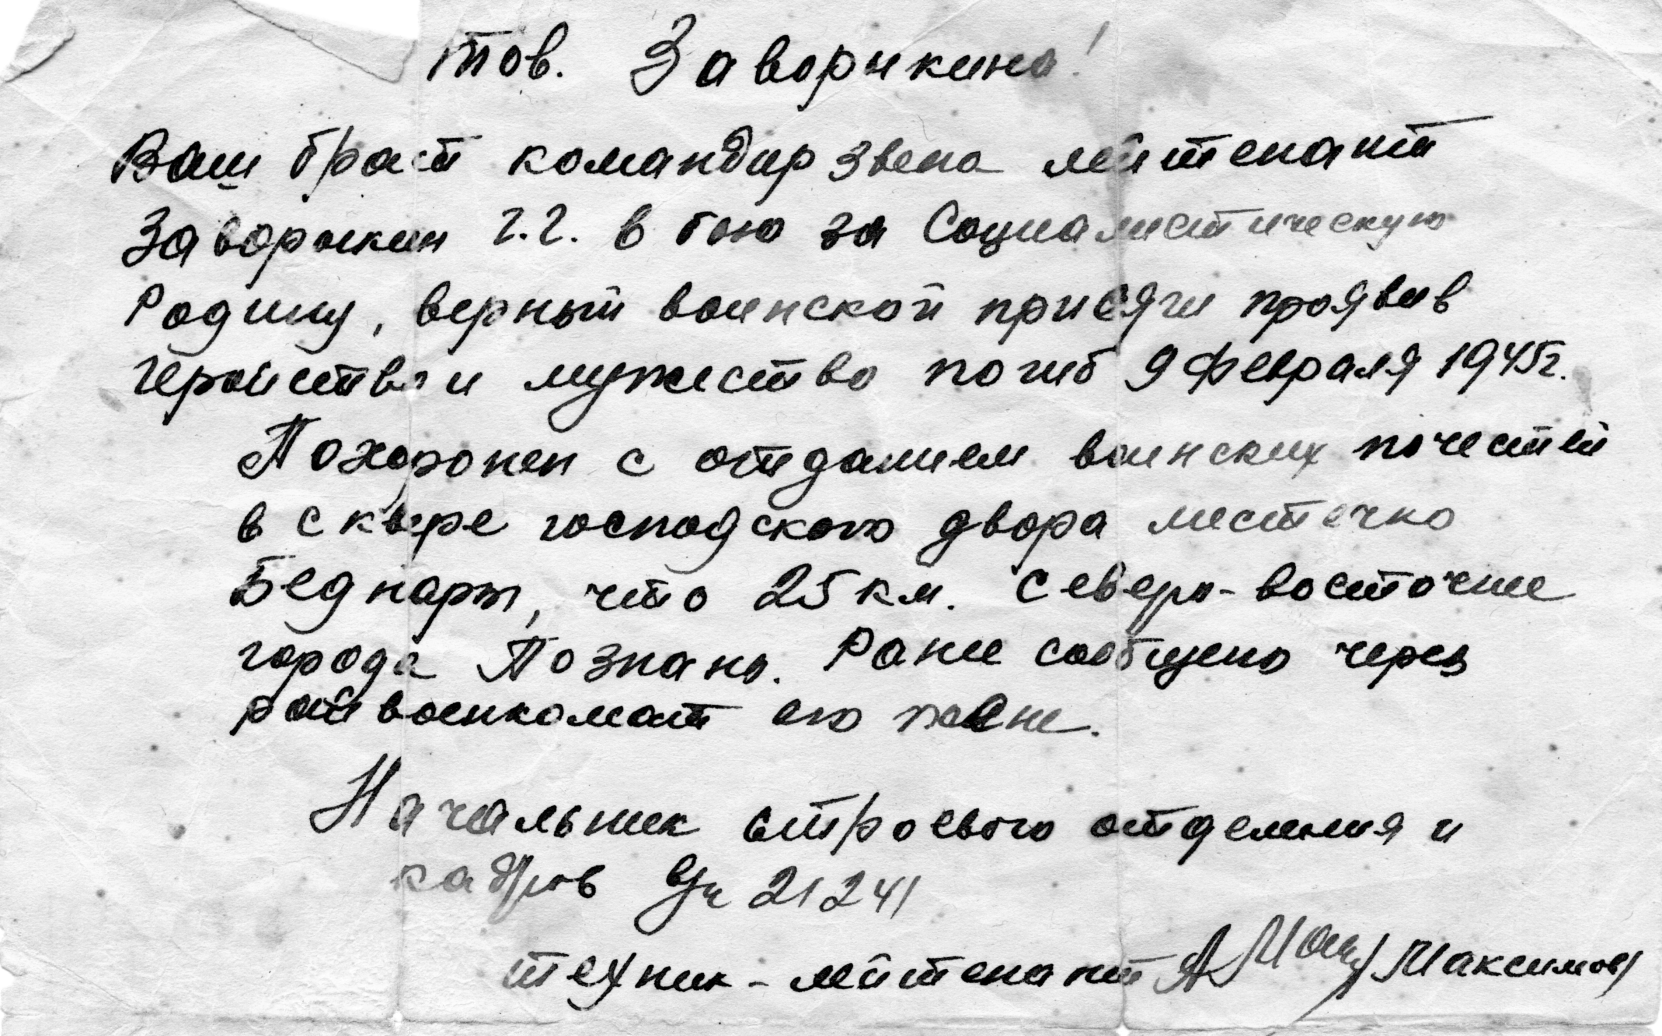 Тов. Заворыкина!
Ваш брат командир звена лейтенант
Заворыкин Г.Г. в бою за Социалистическую
Родину, верный воинской присяги проявив
геройство и мужество погиб 9 февраля 1945г.
Похоронен с отданием воинских почестей
в сквере господского двора местечко
Беднары, что 25 км. северо-восточнее
города Познань. Ранее сообщено через
райвоенкомат его
Начальник строевого отделения и
кадров вч 21241
техник-лейтенант /Максимов/